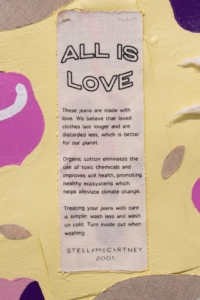 ALL IS
LOVE
These jeans are made with
love. We believe that loved
clothes last longer and are
discarded less, which is better
for our planet.
Organic cotton eliminates the
use of toxic chemicals and
improves soil health, promoting
healthy ecosystems which
helps alleviate climate change.
Treating your jeans with care
is simple: wash less and wash
on cold. Turn inside out when
washing.
STELLA McCARTNEY
2001.